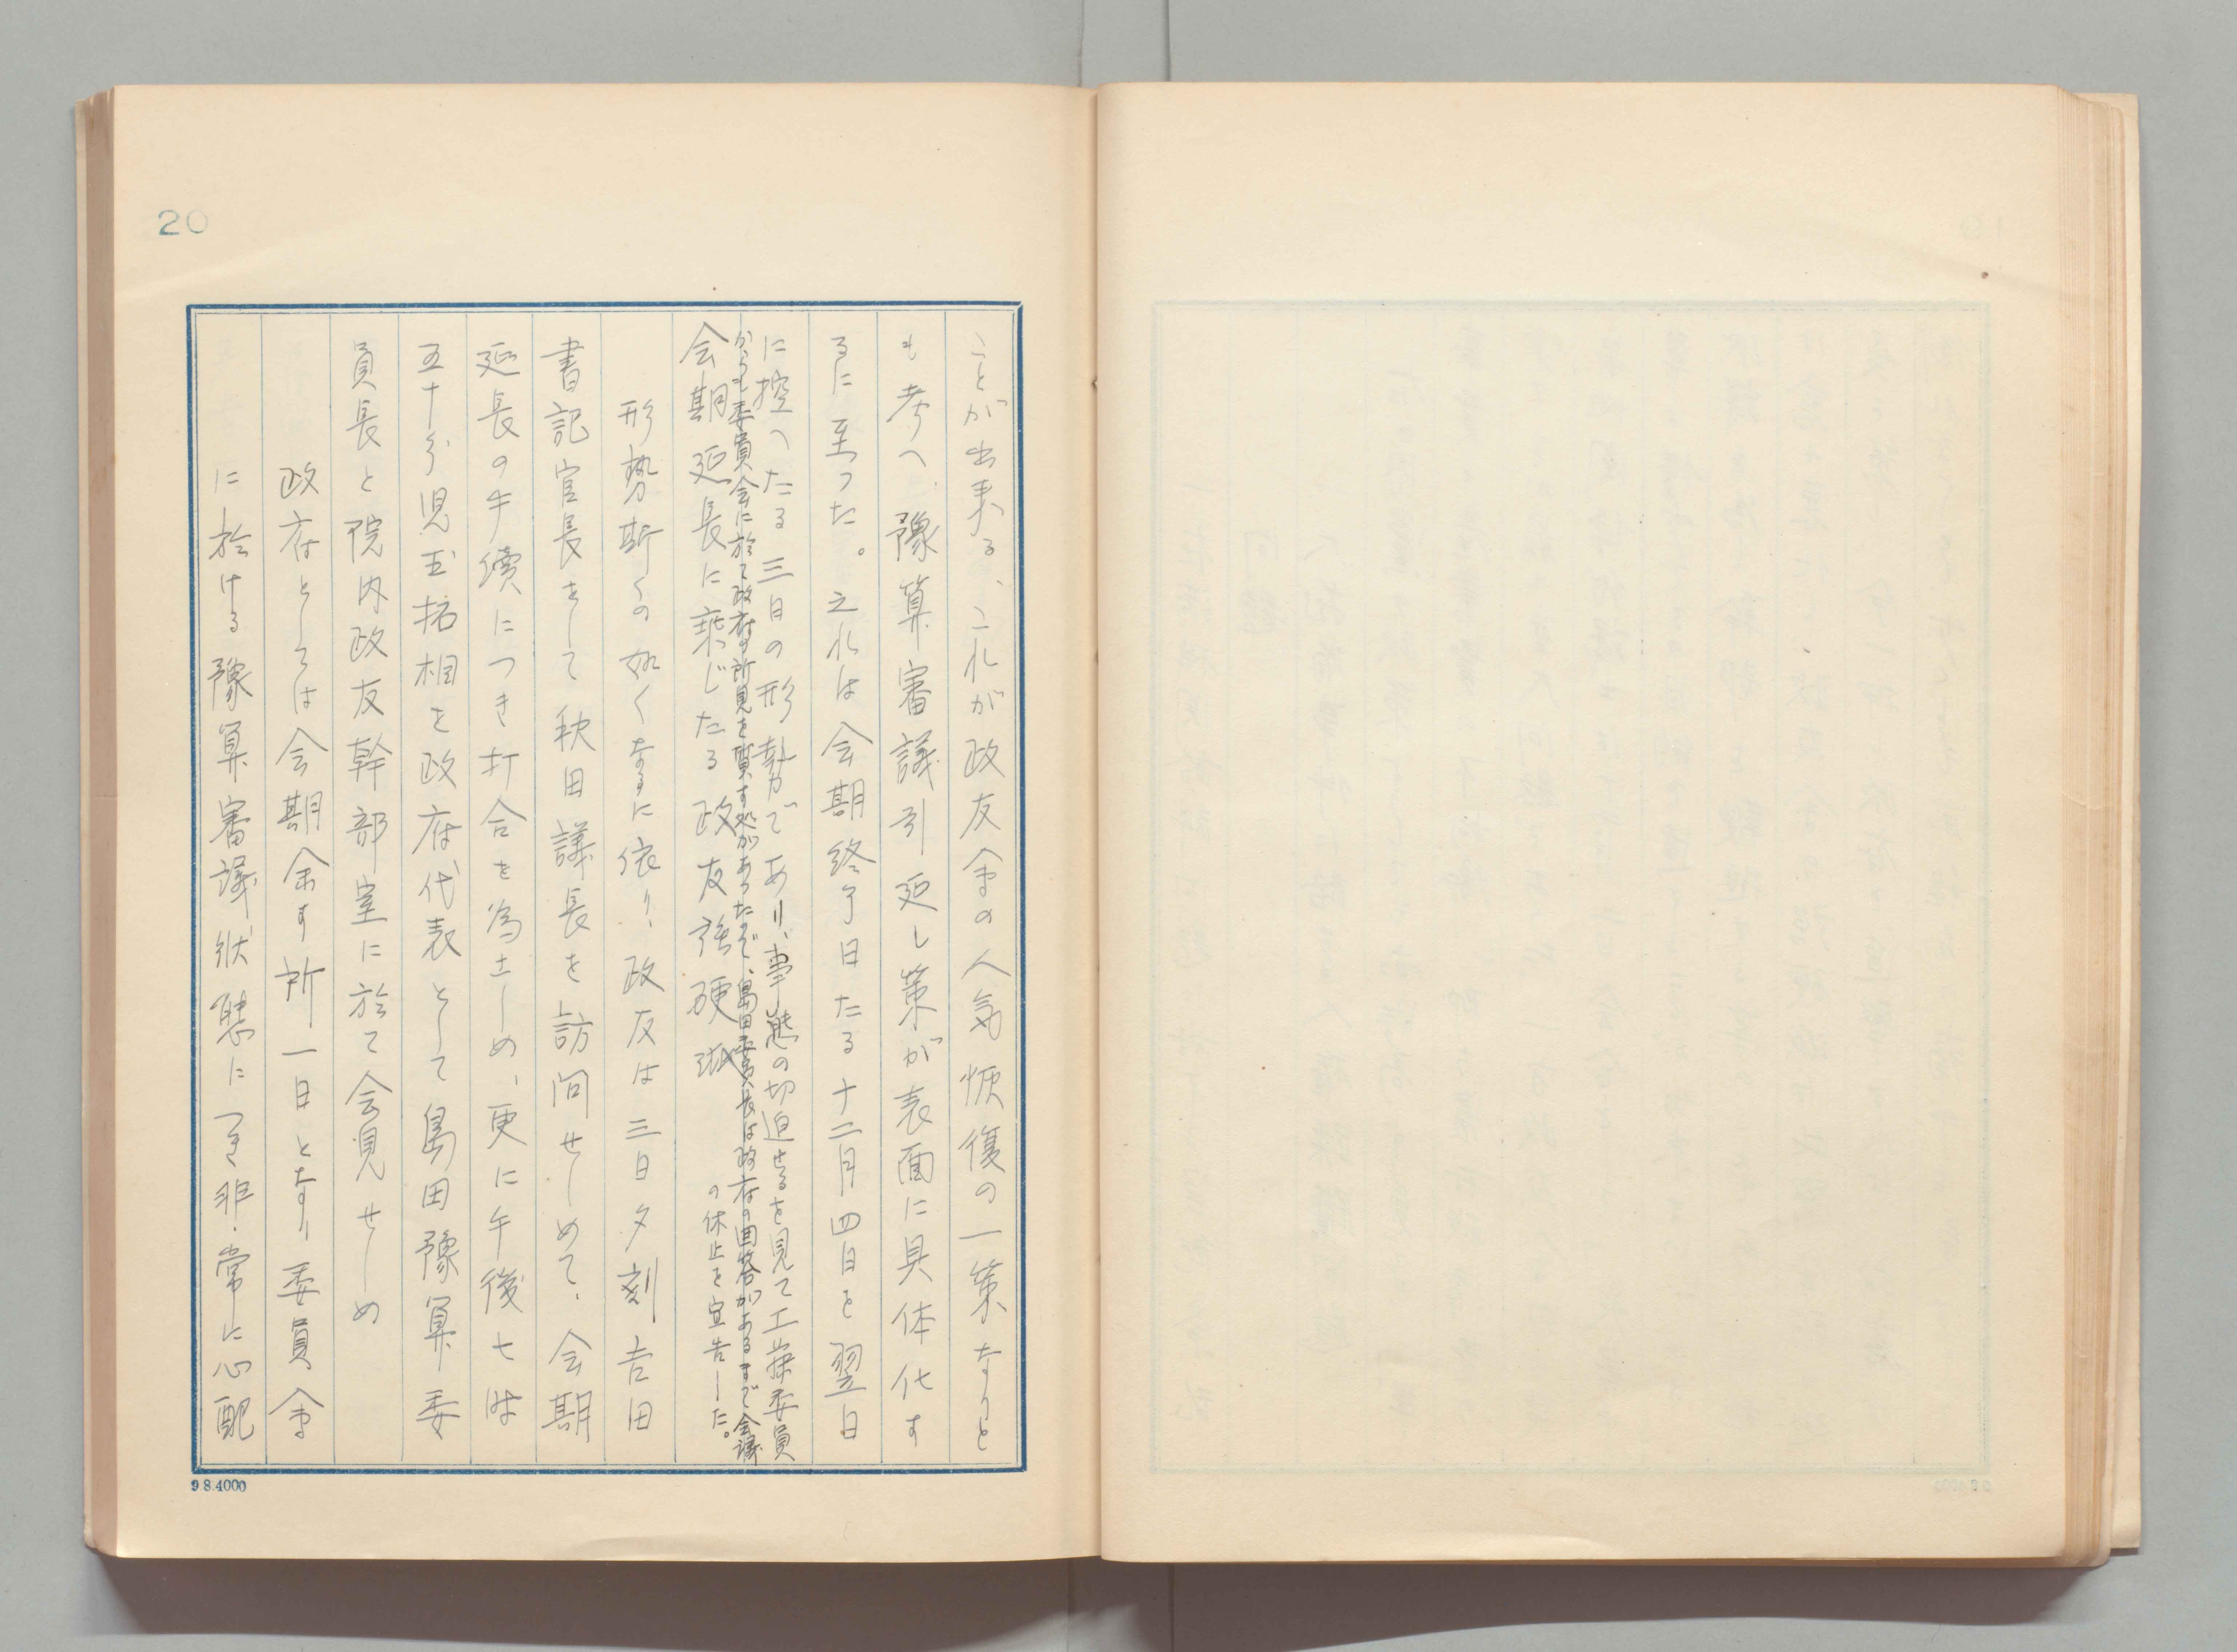 20
ことが出来る、これが政友会の人気恢復の一策なりと
も考へ、豫算審議引延し策が表面に具体化す
るに至つた。之れは会期終了日たる十二月四日を翌日
に控へたる三日の形勢であり、事態の切迫せるを見て工藤委員
からも委員会に於て政府の所見を質す処があつたので、島田委員長は政府の回答があるまで会議
の休止を宣告した。
会期延長に乗じたる政友強硬派
形勢斯くの如くなるに依り、政友は三日夕刻吉田
書記官長をして秋田議長を訪問せしめて、会期
延長の手續につき打合を為さしめ、更に午後七時
五十分児玉拓相を政府代表として島田豫算委
員長と院内政友幹部室に於て会見せしめ
政府としては会期余す所一日となり委員会
に於ける豫算審議状態につき非常に心配
9 8.4000